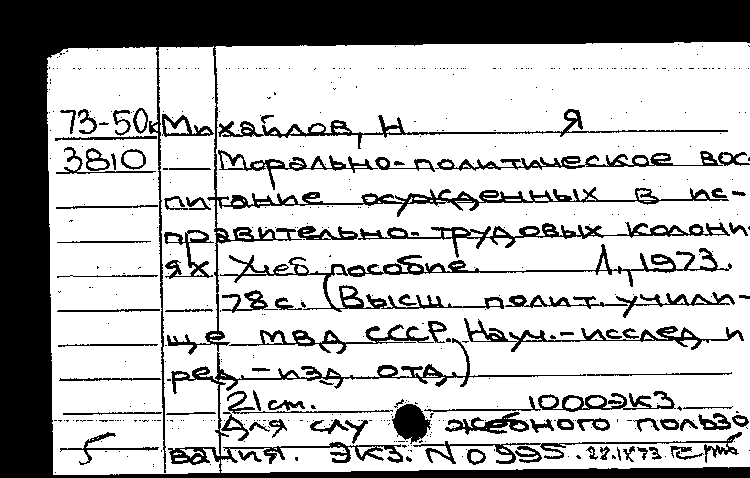 73-50к Михайлов, Н Я
3810 Морально-политическое вос
питание осужденных в ис-
правительно-трудовых колони-
ях. Учеб. пособие. Л., 1973.
78 с. (Высш. полит. учили-
ще МВД СССР. Науч.-исслед. и
ред.-изд. отд.)
21 см. 1000экз.
Для слу жебного пользо
5 вания. Экз. No 995. 28.IX 73